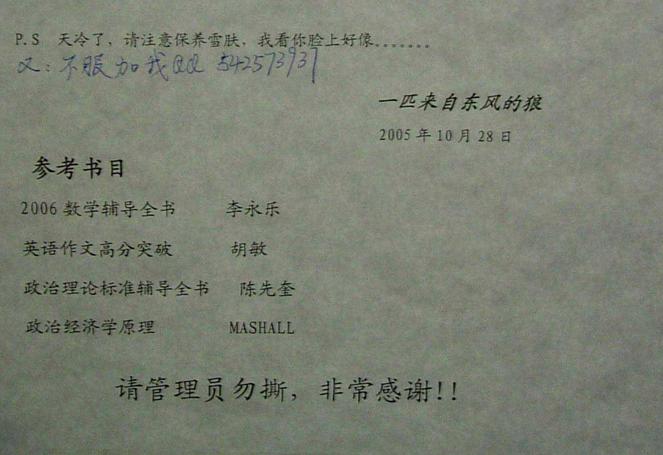 P.S 天冷了，请注意保养雪肤，我看你脸上好像.......
又：不服加我QQ 542573937
一匹来自东风的狼
2005年10月28日
参考书目
2006数学辅导全书 李永乐
英语作文高分突破 胡敏
政治理论标准辅导全书 陈先奎
政治经济学原理 MASHALL
请管理员勿撕，非常感谢!!